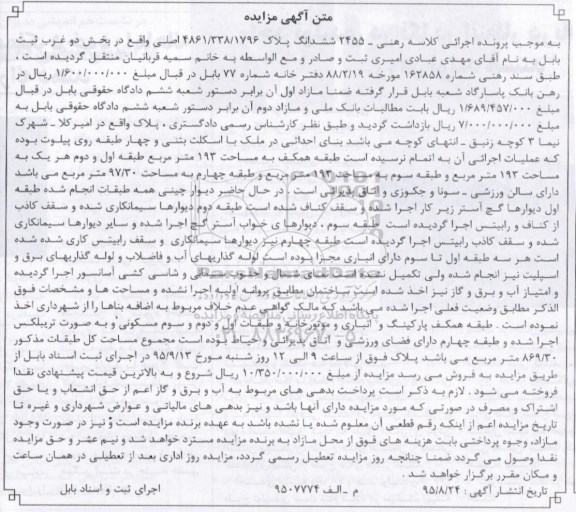 متن آگهی مزایده
به موجب پرونده اجرائی کلاسه رهنی ـ ۲۴۵۵ ششدانگ پلاک ۴۸۶۱/۳۳۸/۱۷۹۶ اصلی واقع در بخش دو غرب ثبت
بابل به نام آقای مهدی عبادی امیری ثبت و صادر و مع الواسطه به خانم سمیه قربانیان منتقل گردیده است ،
طبق سند رهنی شماره ۱۶۲۸۵۸ مورخه ۸۸/۲/۱۹ دفتر خانه شماره ۷۷ بابل در قبال مبلغ ۱/۶۰۰/۰۰۰/۰۰۰ ریال در
رهن بانک پاسارگاد شعبه بابل قرار گرفته ضمنا مازاد اول آن برابر دستور شعبه ششم دادگاه حقوقی بابل در قبال
مبلغ ۱/۶۸۹/۴۵۷/۰۰۰ ریال بابت مطالبات بانک ملی و مازاد دوم آن برابر دستور شعبه ششم دادگاه حقوقی بابل به
مبلغ ۷/۰۰۰/۰۰۰/۰۰۰ ریال بازداشت گردید و طبق نظر کارشناس رسمی دادگستری ، پلاک واقع در امیرکلا ـ شهرک
نیما ۳ کوچه زنبق ـ انتهای کوچه می باشد بنای احداثی در ملک با اسکلت بتنی و چهار طبقه روی پیلوت بوده
که عملیات اجرائی آن به اتمام نرسیده است طبقه همکف به مساحت ۱۹۳ متر مربع طبقه اول و دوم هر یک به
مساحت ۱۹۳ متر مربع و طبقه سوم به مساحت ۱۹۳ متر مربع و طبقه چهارم به مساحت ۹۷/۳۰ متر مربع می باشد
دارای سالن ورزشی ـ سونا و جکوزی و اتاق پذیرائی است . در حال حاضر دیوار چینی همه طبقات انجام شده طبقه
اول دیوارها گچ آستر زیر کار اجرا شده و سقف کناف شده است طبقه دوم دیوارها سیمانکاری شده و سقف کاذب
از کناف و رابیتس اجرا گردیده است . طبقه سوم ، دیوارها ی خواب آستر گچ اجرا شده و سایر دیوارها سیمانکاری
شده و سقف کاذب رابیتس اجرا گردیده است طبقه چهارم نیز دیوارها سیمانکاری و سقف رابیتس کاری شده شده
است هر سه طبقه اول تا سوم دارای انباری مجزا بوده است لوله گذاریهای آب و فاضلاب و لوله گذاریهای برق و
اسپلیت نیز انجام شده ولی تکمیل نشده و شاسی کشی آسانسور اجرا گردیده
و امتیاز آب و برق و گاز نیز اخذ شده است ساختمان مطابق پروانه اولیه اجرا نشده و مساحت ها و مشخصات فوق
الذکر مطابق وضعیت فعلی اجرا شده می باشد که مالک گواهی عدم خلاف مربوط به اضافه بناها را از شهرداری اخذ
نموده است . طبقه همکف پارکینگ و انباری و موتورخانه و طبقات اول و دوم و سوم مسکونی و به صورت تریپلکس
اجرا شده و طبقه چهارم دارای فضای ورزشی و اتاق پذیرائی و حیاط بوده است مجموع مساحت کل طبقات مذکور
۸۶۹/۳۰ متر مربع می باشد پلاک فوق از ساعت ۹ الی ۱۲ روز شنبه مورخ ۹۵/۹/۱۳ در اجرای ثبت اسناد بابل از
طریق مزایده به فروش می رسد مزایده از مبلغ ۱۰/۳۵۰/۰۰۰/۰۰۰ ریال شروع و به بالاترین قیمت پیشنهادی نقدا
فروخته می شود . لازم به ذکر است پرداخت بدهی های مربوط به آب و برق و گاز اعم از حق انشعاب و یا حق
اشتراک و مصرف در صورتی که مورد مزایده دارای آنها باشد و نیز بدهی های مالیاتی و عوارض شهرداری و غیره تا
تاریخ مزایده اعم از اینکه رقم قطعی آن معلوم شده یا نشده باشد به عهده برنده مزایده است و نیز در صورت وجود
مازاد، وجوه پرداختی بابت هزینه های فوق از محل مازاد به برنده مزایده مسترد خواهد شد و نیم عشر و حق مزایده
نقدا وصول می گردد ضمنا چنانچه روز مزایده تعطیل رسمی گردد، مزایده روز اداری بعد از تعطیلی در همان ساعت
و مکان مقرر برگزار خواهد شد .
تاریخ انتشار آگهی : ۹۵/۸/۲۴ م ـ الف ۹۵۰۷۷۷۴ اجرای ثبت و اسناد بابل